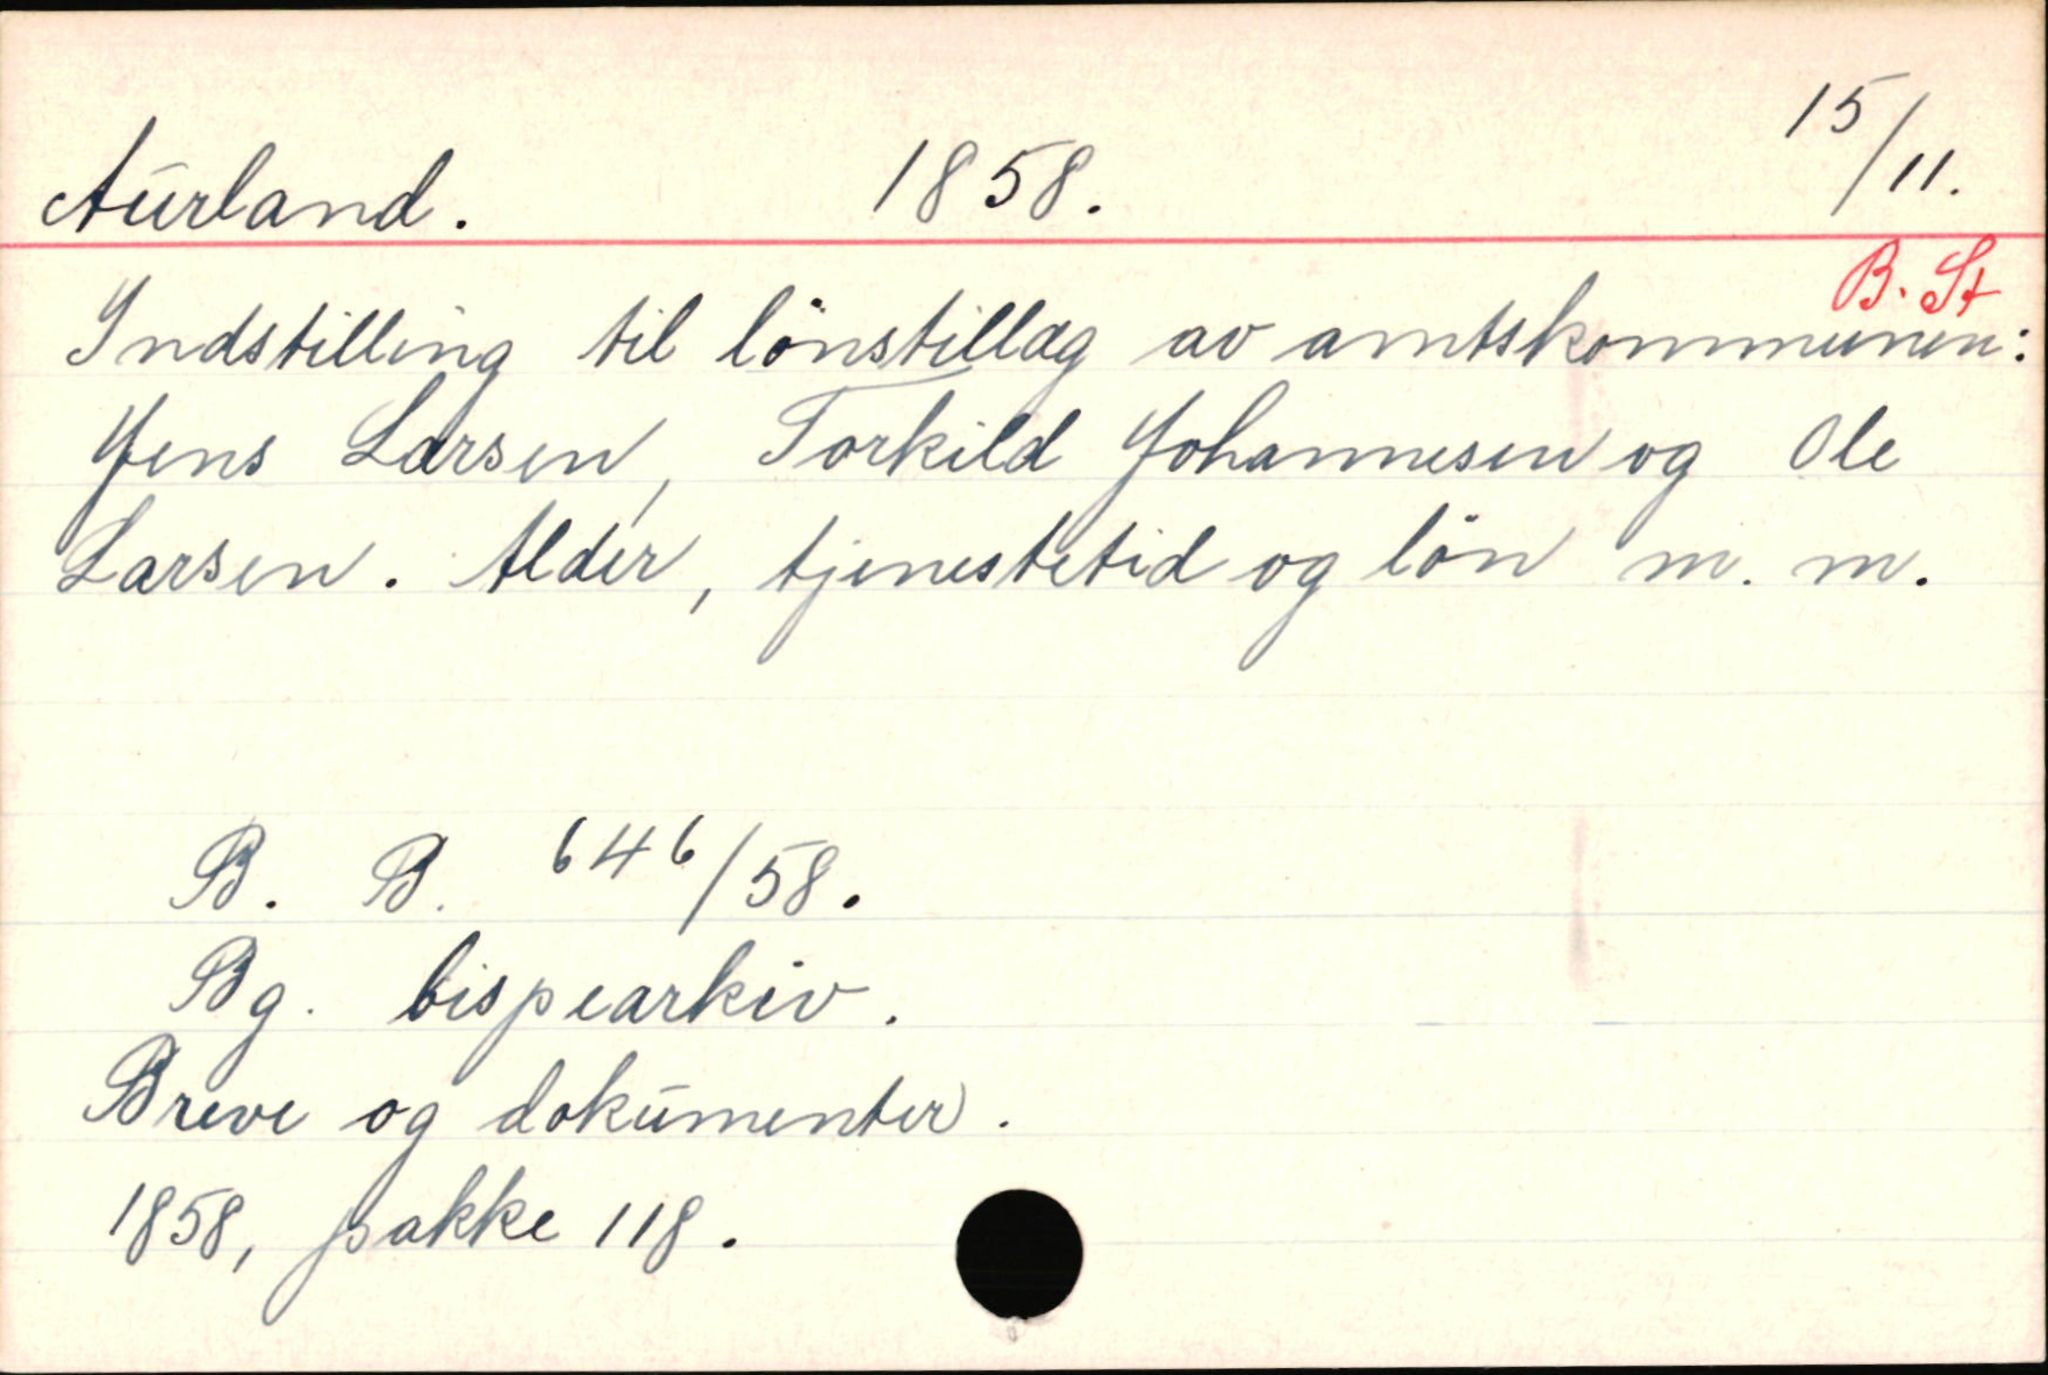 Aurland. 1858. 15/11.
B. St
Indstilling til lönstillæg av amtskommunen:
Jens Larsen, Torkild Johannesen og Ole
Larsen. Alder, tjenestetid og lön m. m.
B. B. 646/58.
Bg. bispearkiv.
Breve og dokumenter.
1858, pakke 118.